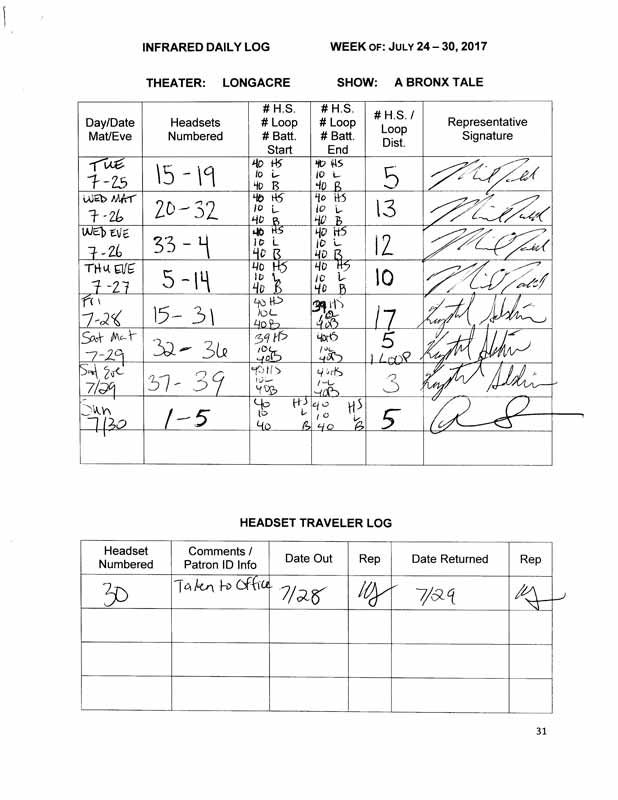 INFRARED DAILY LOG WEEK OF: JULY 24 – 30, 2017
THEATER: LONGACRE SHOW: A BRONX TALE
Day/Date Mat/Eve Headsets Numbered # H.S. # Loop # Batt. Start # H.S. # Loop # Batt. End # H.S. / Loop Dist. Representative Signature
TUE 7-25 15-19 40 HS 10 L 40 B 40 HS 10 L 40 B 5
WED MAT 7-26 20-32 40 HS 10 L 40 B 40 HS 10 L 40 B 13
WED EVE 7-26 33-4 40 HS 10 L 40 B 40 HS 10 L 40 B 12
THU EVE 7-27 5-14 40 HS 10 L 40 B 40 HS 10 L 40 B 10
Fri 7-28 15-31 40 HS 10L 40B 39 HS 10L 40B 17
Sat Mat 7-29 32-36 39 HS 10L 40B 40HS 10L 40B 5 1 LOOP
Sat Eve 7/29 37-39 40HS 10L 40B 40HS 40B 3
Sun 7/30 1-5 40 HS 10 L 40 B 40 HS 10 L 40 B 5
HEADSET TRAVELER LOG
Headset Numbered Comments / Patron ID Info Date Out Rep Date Returned Rep
30 Taken to Office 7/28 7/29
31